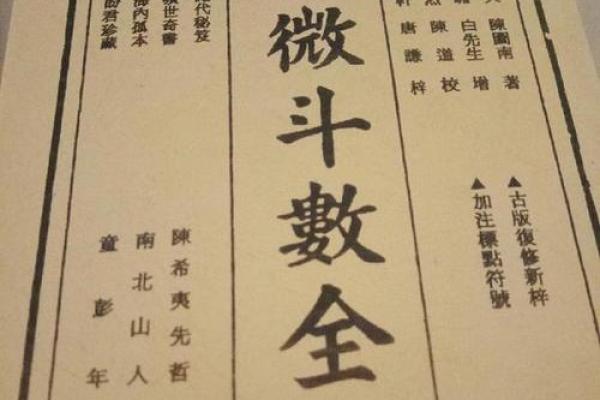 陳圖南著
白先生增
陳道校
軒唐謙梓
▲古版復修新梓
▲加注標點符號
微斗數全
代秘笈
世奇書
海內孤本
君珍藏
陳希夷先哲
南北山人
童彭年